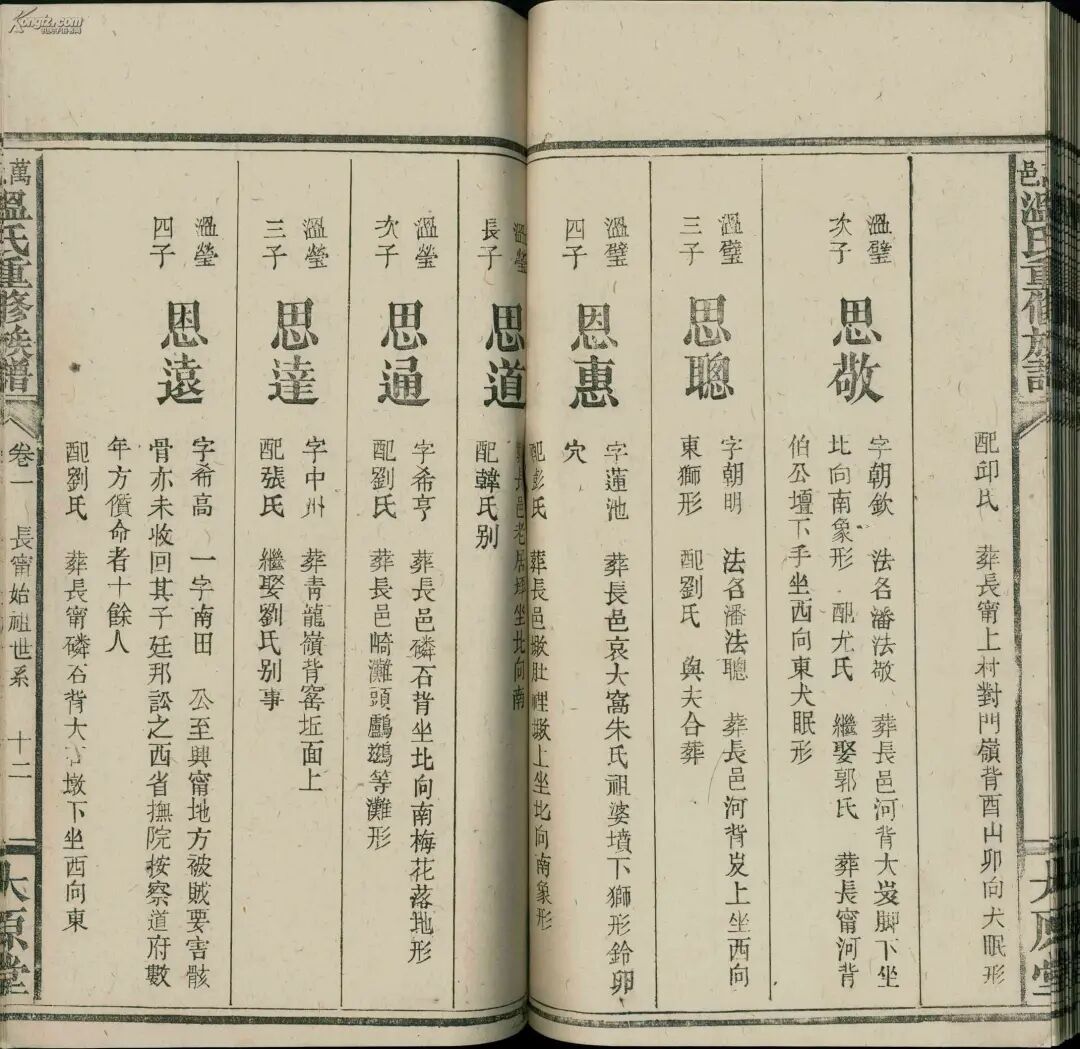 Kongfz.com
邑溫氏重修族譜
配邱氏 葬長甯上村對門嶺背酉山卯向犬眠形
溫璧
次子
思敬
字朝欽 法名潘法敬 葬長邑河背大岌脚下坐
北向南象形 配尤氏 繼娶郭氏 葬長甯河背
伯公壇下手坐西向東犬眠形
溫璧
三子
思聰
字朝明 法名潘法聰 葬長邑河背岌上坐西向
東獅形 配劉氏 與夫合葬
溫璧
四子
思惠
字蓮池 葬長邑哀大窩朱氏祖婆墳下獅形鈴卵
穴
配彭氏 葬長邑墩肚裡墩上坐北向南象形
溫瑩
長子
思道
長邑老居坪坐北向南
配韓氏别
溫瑩
次子
思通
字希亨 葬長邑磷石背坐北向南梅花落地形
配劉氏 葬長邑崎灘頭鸕鷀等灘形
溫瑩
三子
思達
字中州 葬青龍嶺背窰坵面上
配張氏 繼娶劉氏别事
溫瑩
四子
思遠
字希高 一字南田 公至興甯地方被賊要害骸
骨亦未收回其子廷邦訟之西省撫院按察道府數
年方償命者十餘人
配劉氏 葬長甯磷石背大墩下坐西向東
萬
溫氏重修族譜
卷一
長甯始祖世系
十二
太原堂